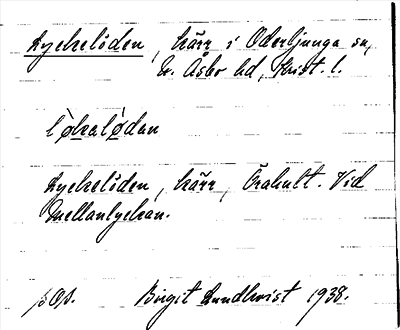 Lyckelöden, kärr i Oderljunga sn,
N. Åsbo hd, Krist. l.
lø̀kalø̀dan
Lyckelöden, kärr, Örahult. Vid
Mellanlyckan.
Birgit Lundkvist 1938.